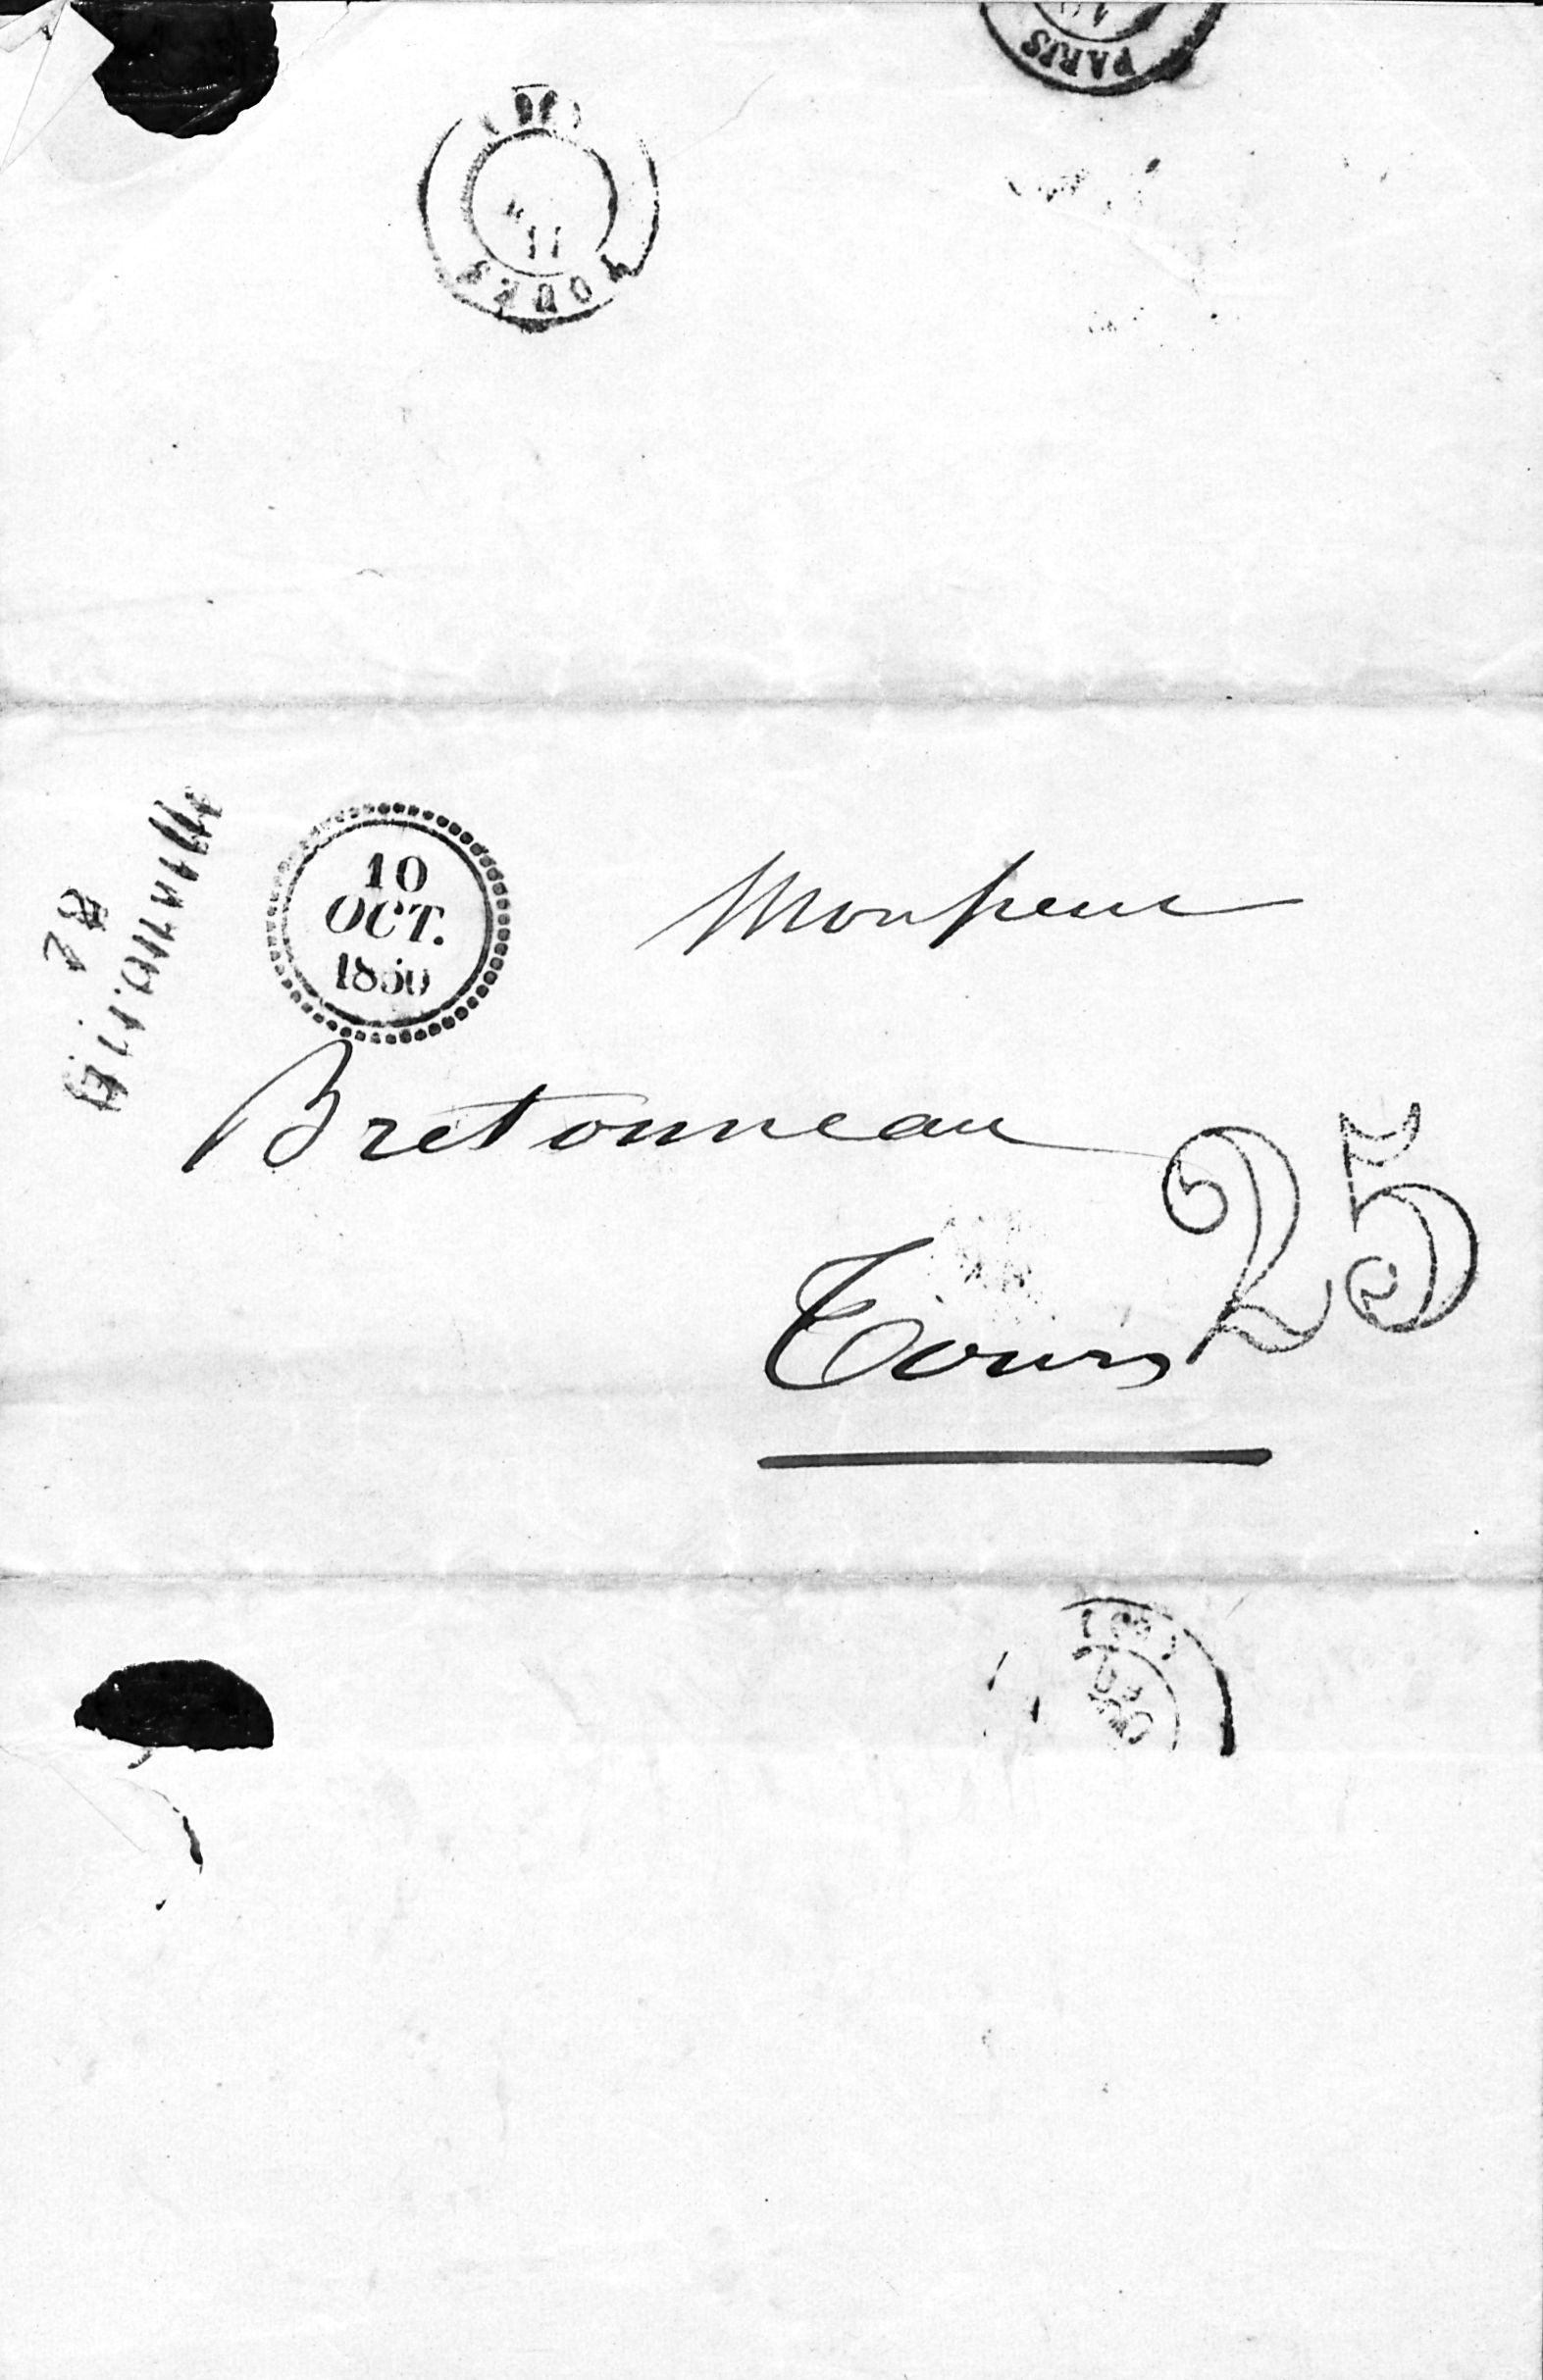 PARIS
11
TOURS
78
10
OCT.
1850
Monsieur
Bretonneau
25
Tours